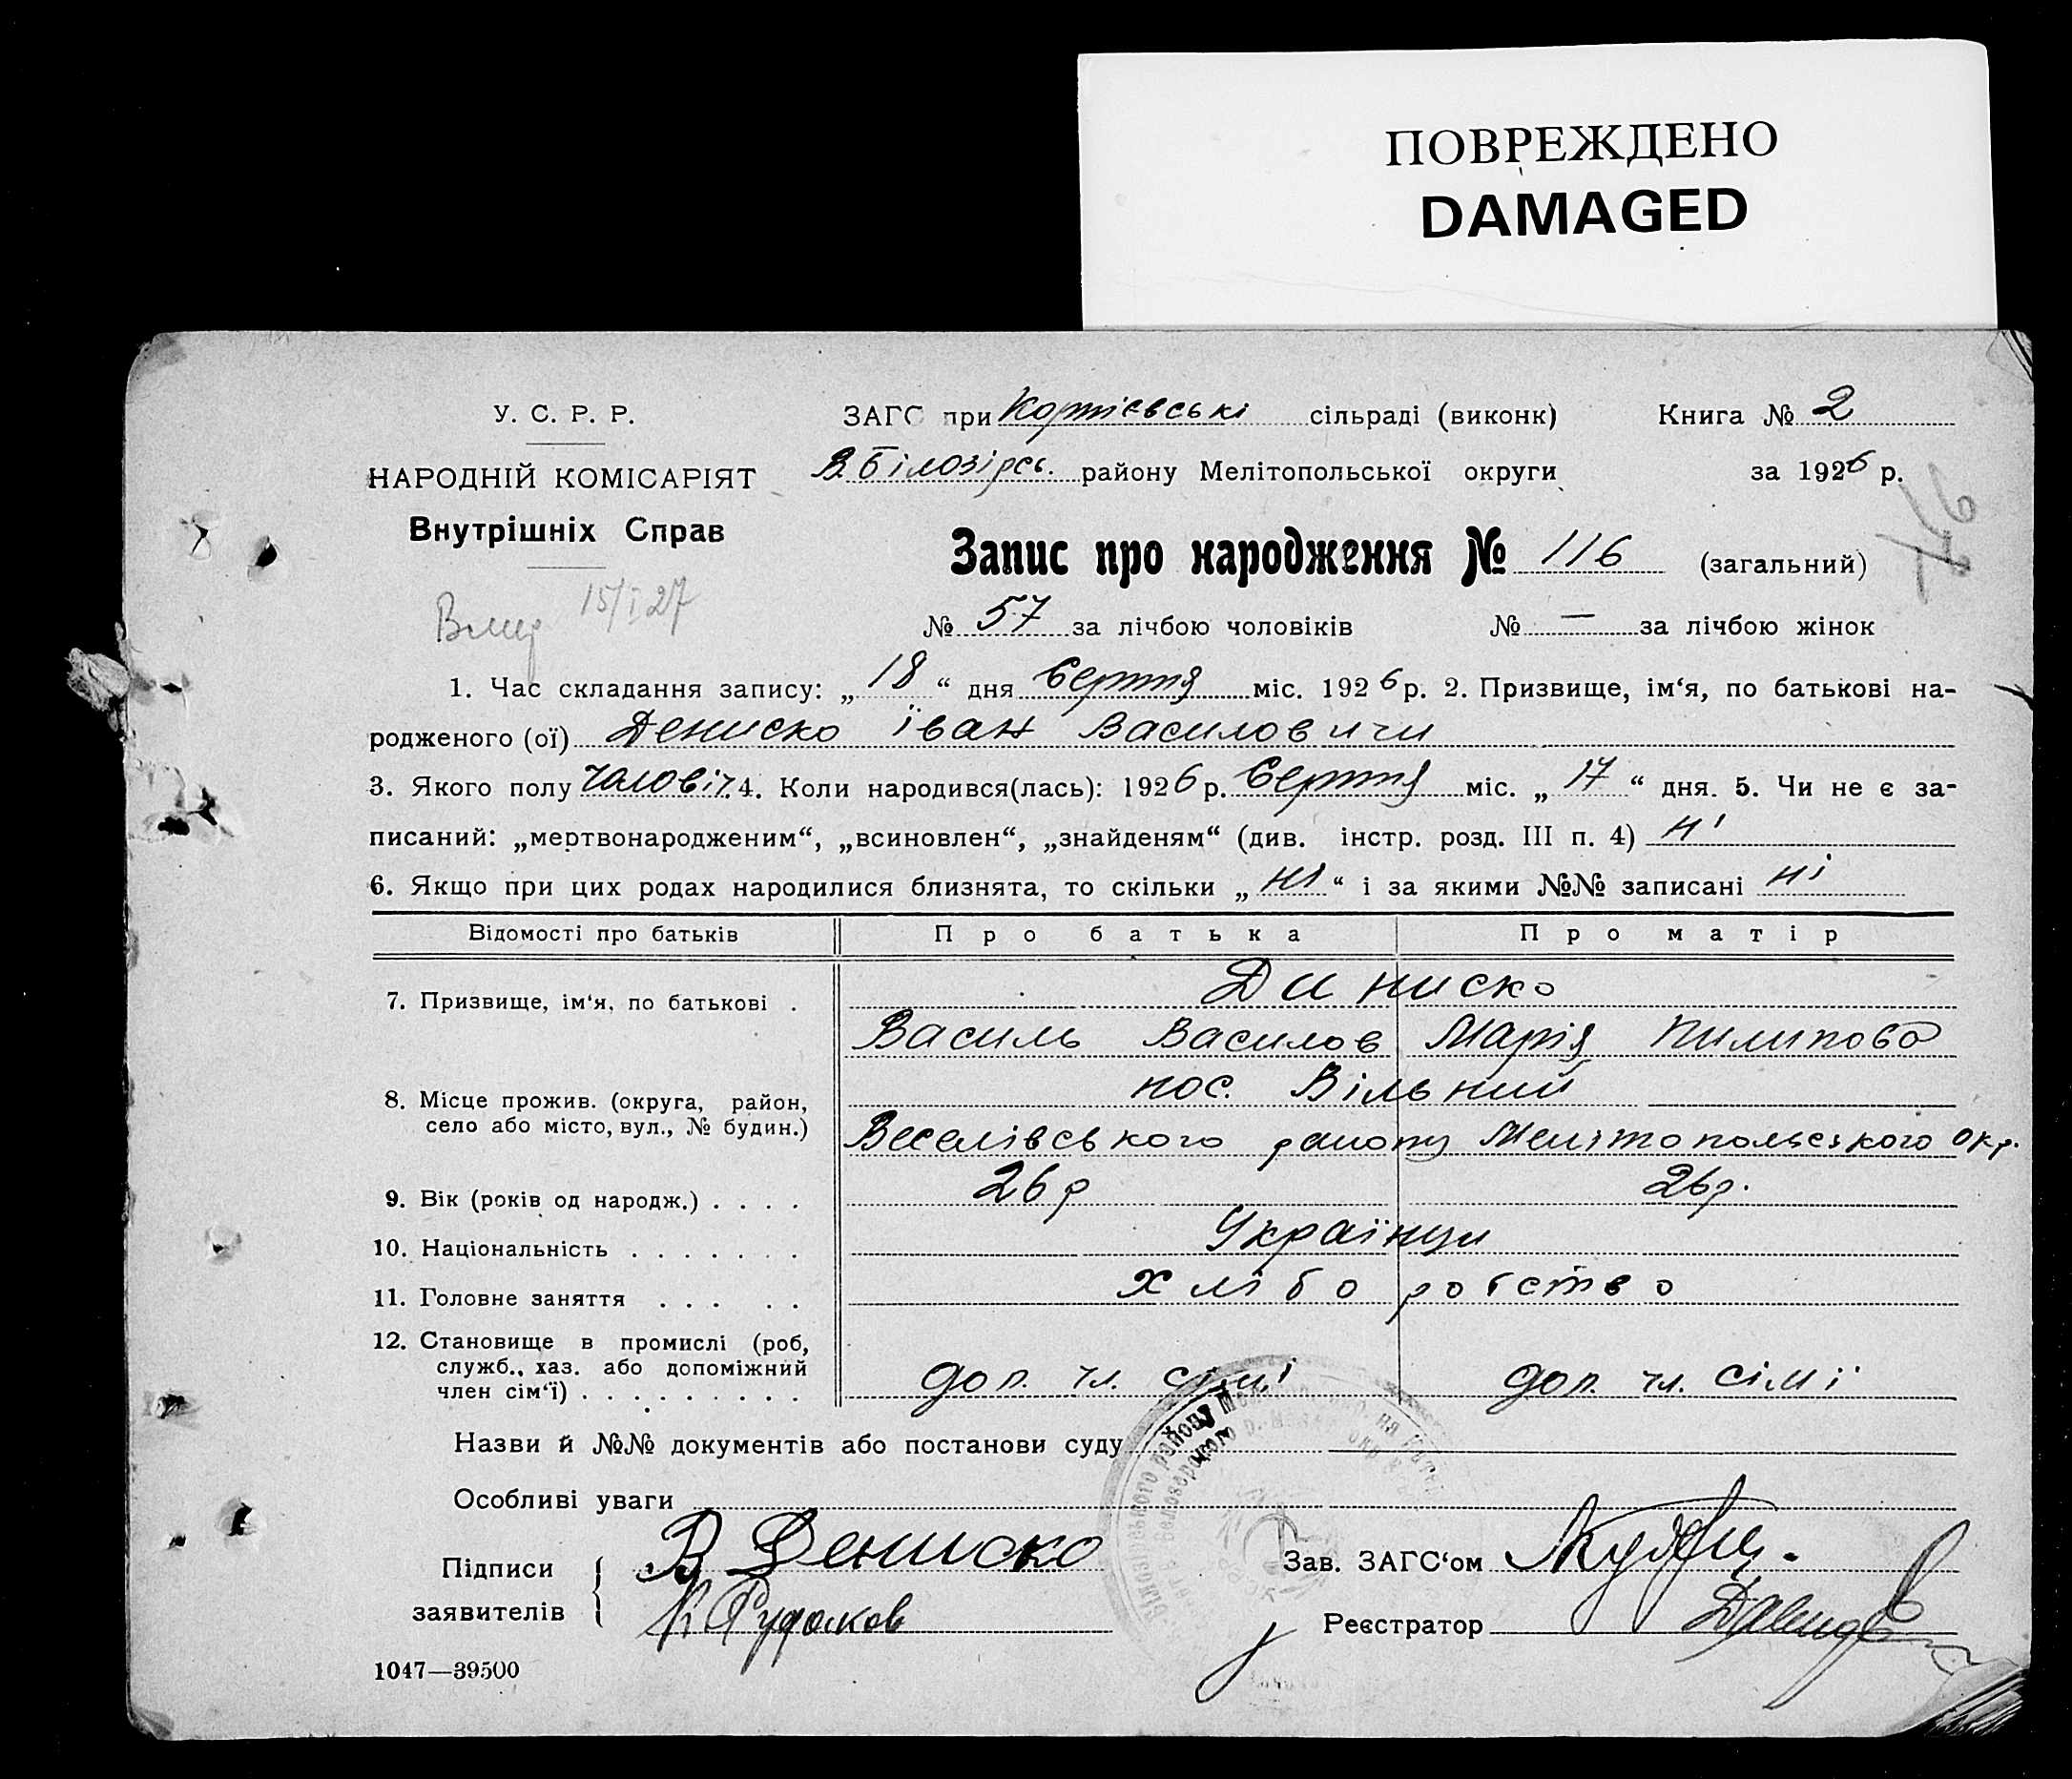 ПОВРЕЖДЕНО
DAMAGED
У. С. Р. Р.
НАРОДНІЙ КОМІСАРІЯТ
Внутрішніх Справ
15/I 27
ЗАГС при сільраді (виконк) Книга № 2
В. Білозірсь. району Мелітопольської округи за 1926 р.
Запис про народження № 116 (загальний)
№ 57 за лічбою чоловіків № — за лічбою жінок
1. Час складання запису: „ 18 “ дня Серпня міс. 1926 р. 2. Призвище, ім‘я, по батькові на-
родженого (ої) Дениско Іван Василовичи
3. Якого полу чоловіч. 4. Коли народився(лась): 1926 р. Серпня міс. „ 17 “ дня. 5. Чи не є за-
писаний: „мертвонародженим“, „всиновлен“, „знайденям“ (див. інстр. розд. III п. 4) ні
6. Якщо при цих родах народилися близнята, то скільки „ ні “ і за якими №№ записані ні
Відомості про батьків Про батька Про матір
7. Призвище, ім‘я, по батькові . Диниско
Василь Василов Марія Пилипова
8. Місце прожив. (округа, район, село або місто, вул., № будин.) пос. Вільний
Веселівського району Мелітопольського окр.
9. Вік (років од народж.) . . . . 26 р 26 р.
10. Національність . . . . . . . Українци
11. Головне заняття . . . . . хліборобство
12. Становище в промислі (роб, служб., хаз. або допоміжний член сім‘ї) . . . . . . . . . доп. чл. сімї доп. чл. сімї
Назви й №№ документів або постанови суду
Особливі уваги
Підписи заявителів В Дениско
Зав. ЗАГС‘ом
Реєстратор
1047—39500